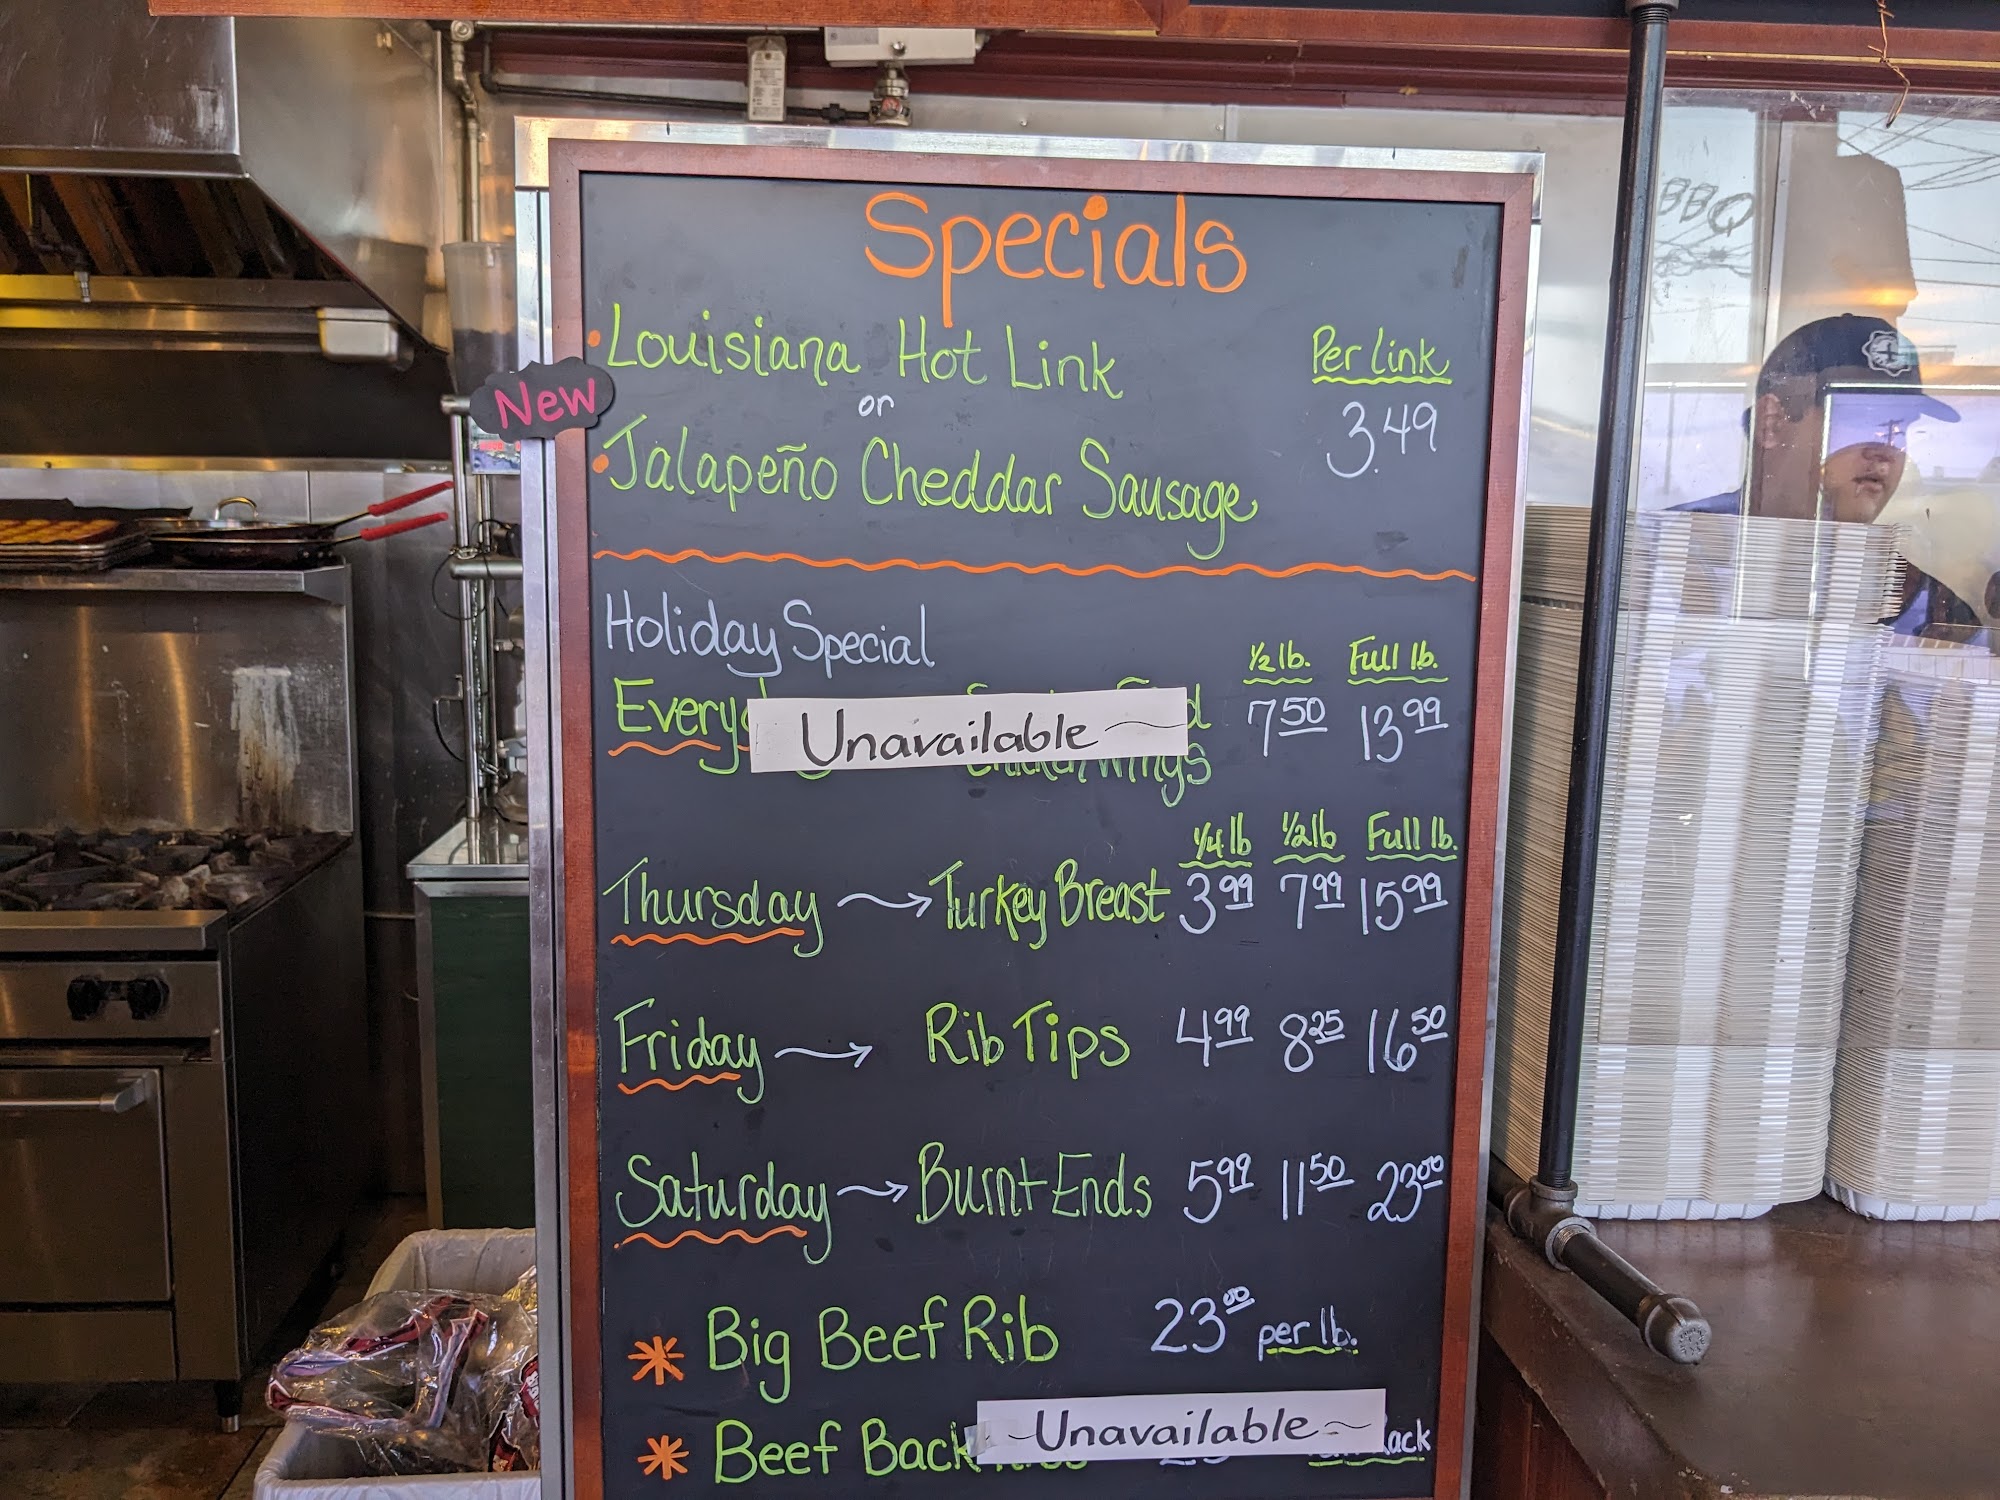 Specials
Louisiana Hot Link
Per Link
New
or
3.49
Jalapeño Cheddar Sausage
Holiday Special
½ lb. Full lb.
Unavailable
7.50 13.99
¼ lb ½ lb Full lb.
Thursday → Turkey Breast 3.99 7.99 15.99
Friday → Rib Tips 4.99 8.25 16.50
Saturday → Burnt Ends 5.99 11.50 23.00
* Big Beef Rib 23.00 per lb.
* Beef Back ~Unavailable~
BBQ